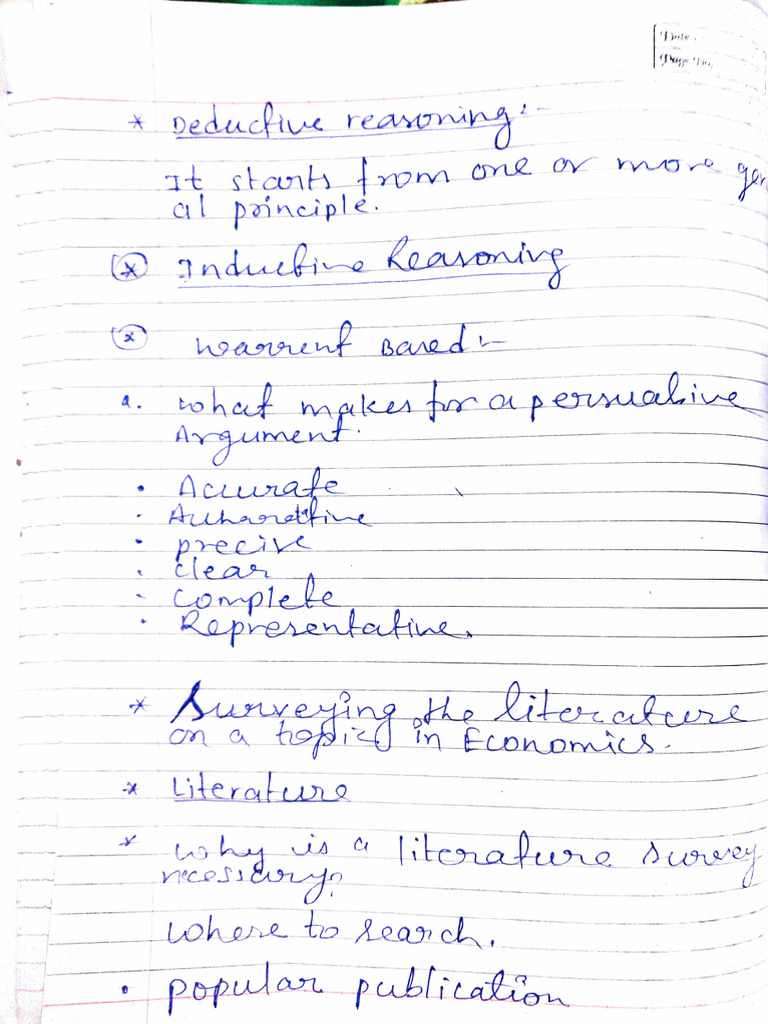 Date :
Page No.
* Deductive reasoning :-
It starts from one or more gen
al principle.
* Inductive Reasoning
* Warrent Based :-
a. what makes for a persuasive
Argument.
• Accurate
• Autharative
• precise
• clear
- complete
• Representative.
* Surveying the literature
on a topic in Economics.
* Literature
* why is a literature survey
necessary?
where to search.
• popular publication